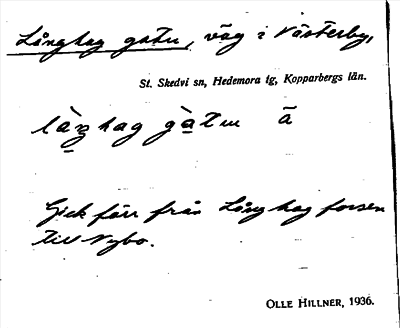 Långhag gatu, väg i Västerby,
St. Skedvi sn, Hedemora tg, Kopparbergs län.
Gick förr från Långhag forsen
till Nybo.
OLLE HILLNER, 1936.